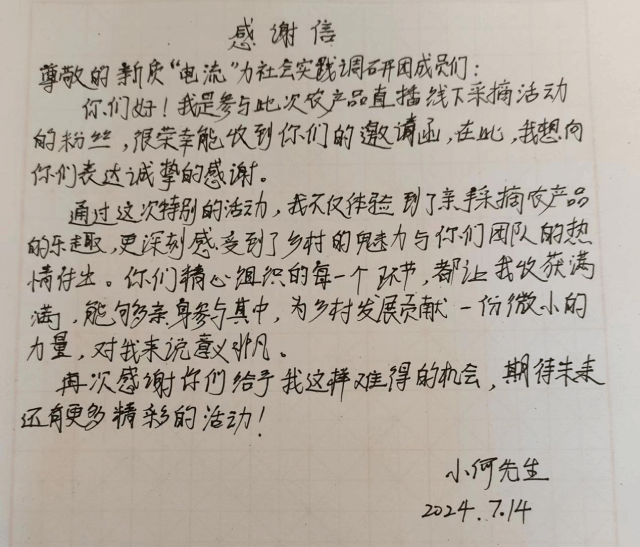 感谢信
尊敬的新质“电流”力社会实践调研团成员们：
你们好！我是参与此次农产品直播线下采摘活动
的粉丝，很荣幸能收到你们的邀请函，在此，我想向
你们表达诚挚的感谢。
通过这次特别的活动，我不仅体验到了亲手采摘农产品
的乐趣，更深刻感受到了乡村的魅力与你们团队的热
情付出。你们精心组织的每一个环节，都让我收获满
满，能够多亲身参与其中，为乡村发展贡献一份微小的
力量，对我来说意义非凡。
再次感谢你们给予我这样难得的机会，期待未来
还有更多精彩的活动！
小何先生
2024.7.14